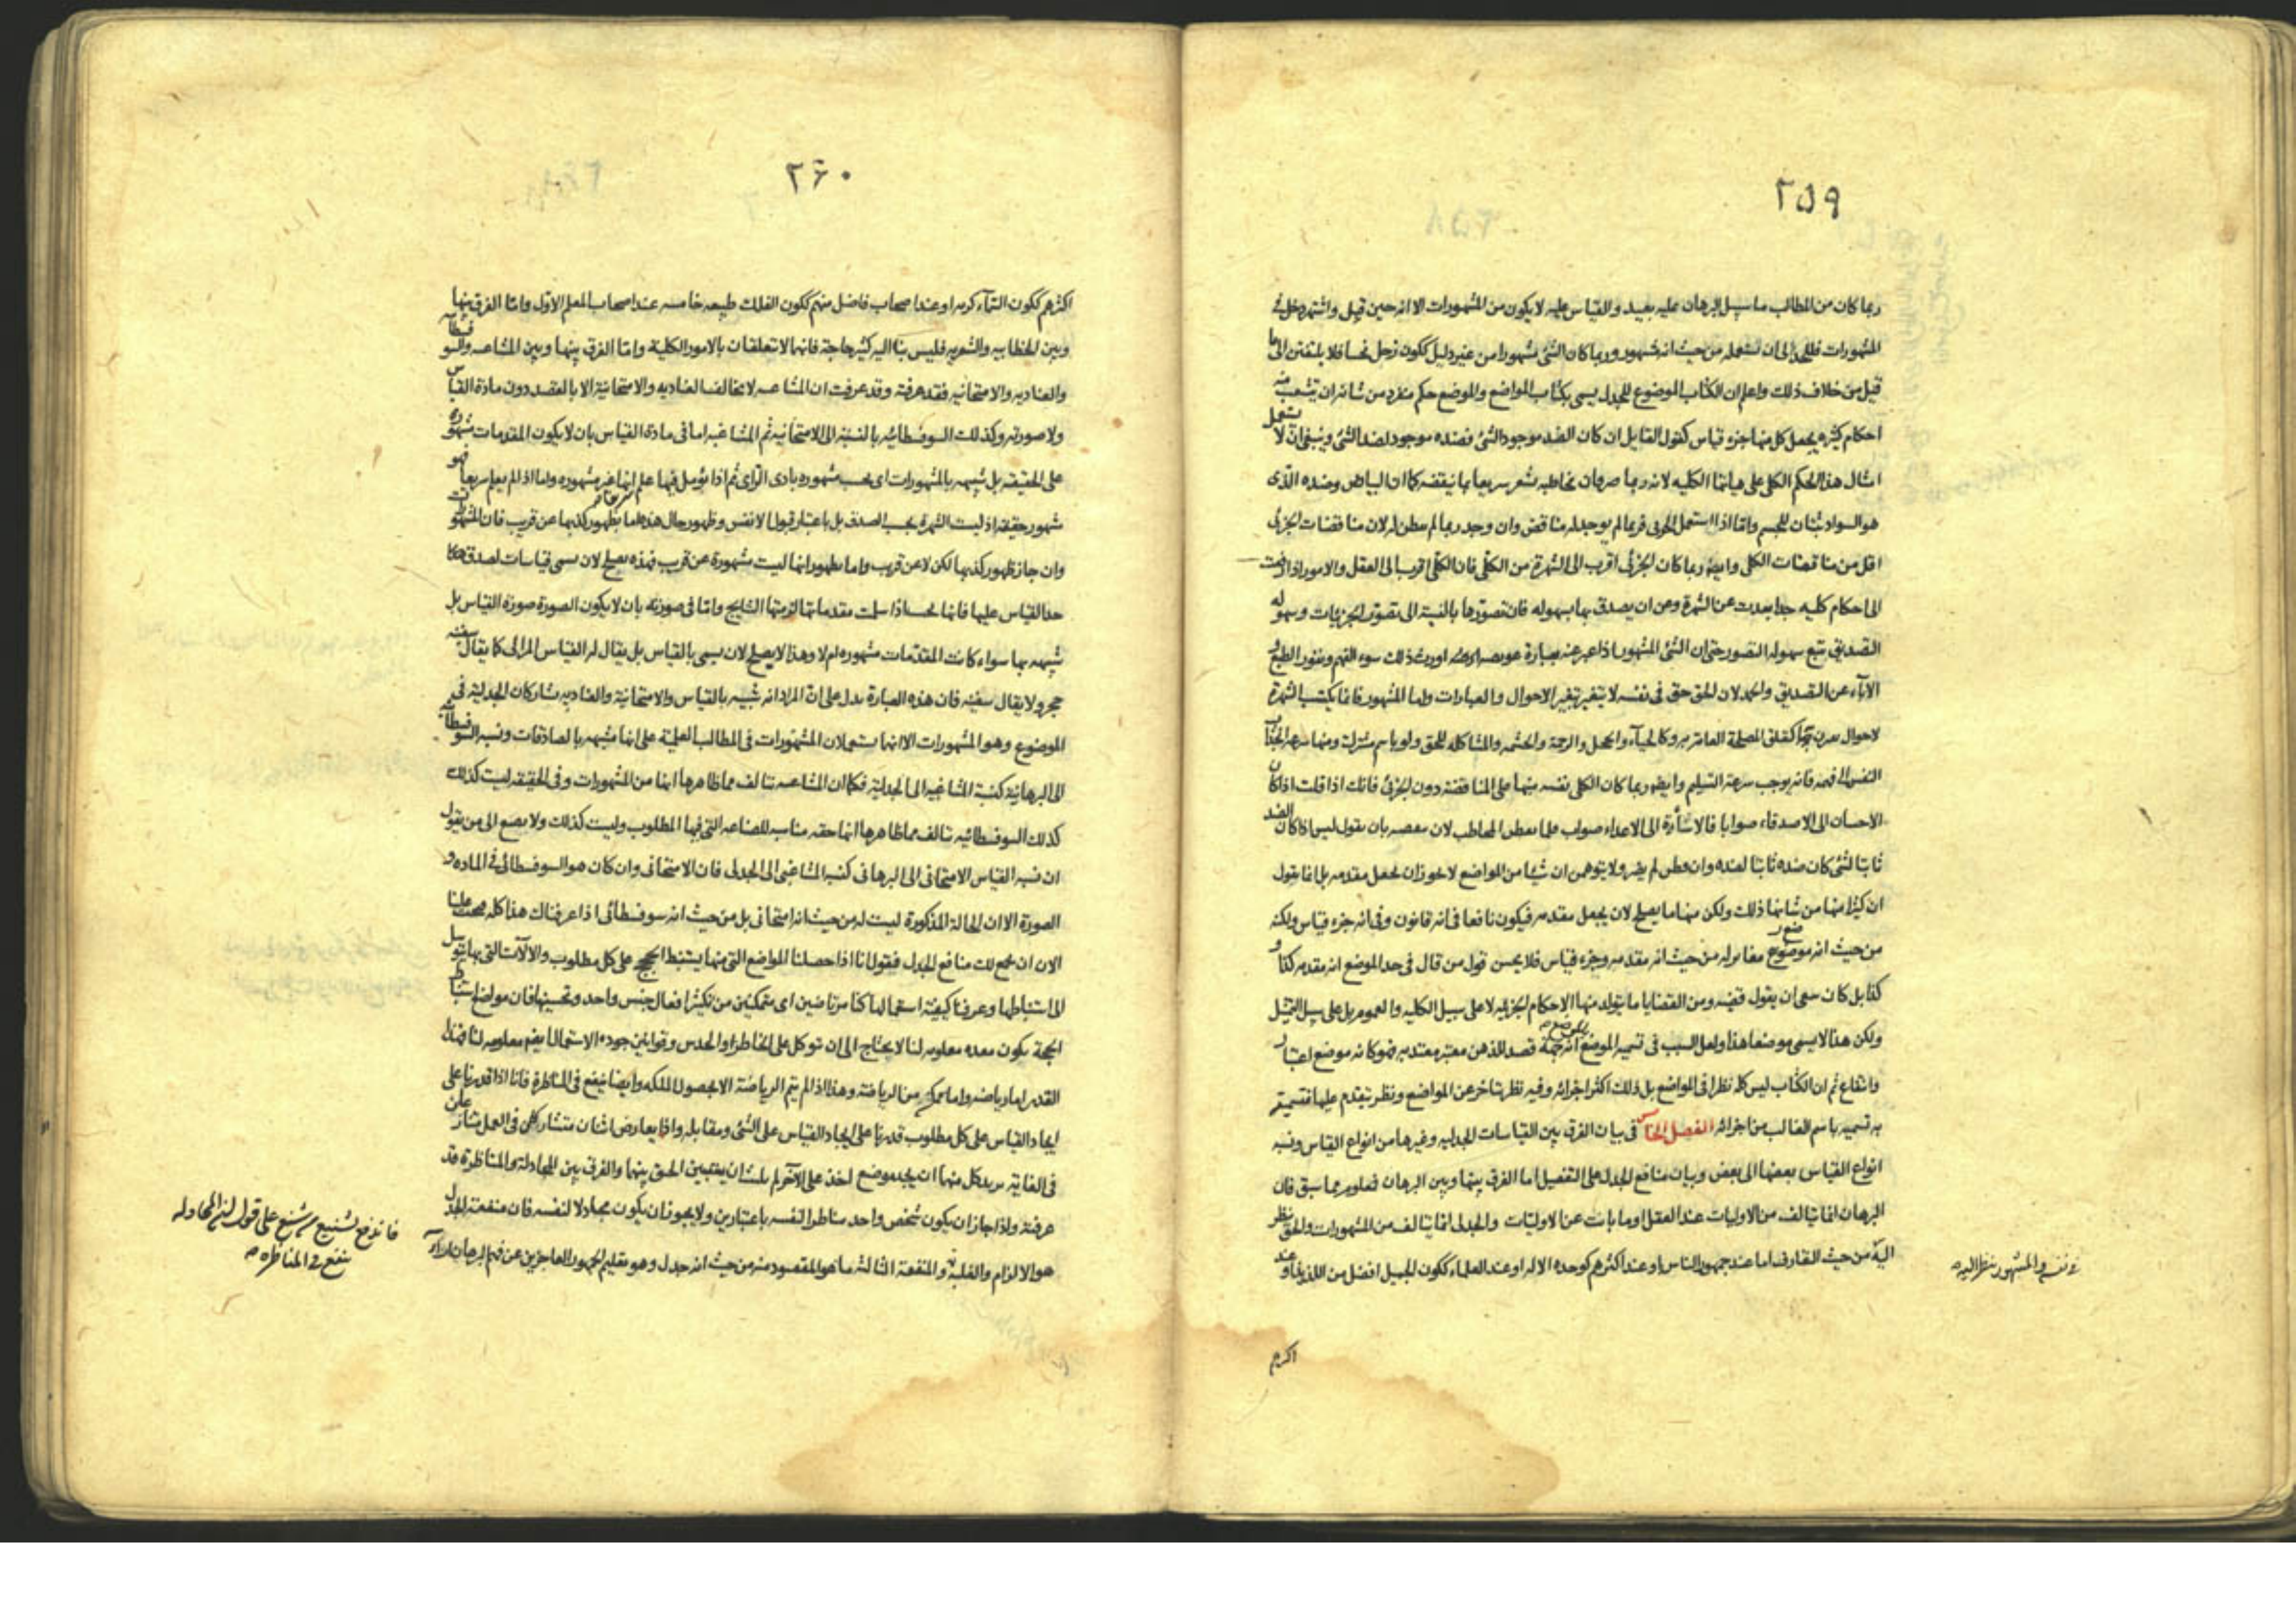 ٢٥٩
ربما كان من المطالب ما سبيل البرهان عليه بعيد والقياس عليه لا يكون من المشهورات الا انه حين قيل واشتهر دخل فى
المشهورات فللجدلى ان يستعمله من حيث انه مشهور وربما كان الشئ مشهورا من غير دليل ككون زحل نحسا فلا يلتفتن الى ما
قيل من خلاف ذلك واعلم ان الكتاب الموضوع للجدل يسمى بكتاب المواضع والموضع حكم منفرد من شانه ان يتشعب منه
احكام كثيره يجعل كل منها جزء قياس كقول القايل ان كان الضد موجودا لشئ فضده موجود لضد الشئ وينبغى ان لا يستعمل
امثال هذا الحكم الكلى على هيأتها الكليه لانه ربما يخاطبه شعر سريعا بما ينقضه كما ان البياض وضده الذى
هو السواد يثبتان للجسم واما اذا استعمل الجزئى فربما لم يوجد له مناقض وان وجد ربما لم يفطن له لان مناقضات الجزئى
اقل من مناقضات الكلى وايضا ربما كان الجزئى اقرب الى الشهرة من الكلى فان الكلى اقرب الى العقل والامور اذا
الى احكام كليه جدا بعدت عن الشهرة وعن ان يصدق بها بسهوله فان تصورها بالنسبة الى تصور الجزئيات وسهوله
التصديق تتبع سهولة التصور حتى ان الشئ المشهور اذا عبر عنه بعبارة اورث ذلك سوء الفهم ونفور الطبع و
الاباء عن التصديق والحمد لان الحق حق فى نفسه لا يتغير بتغير الاحوال والعبارات واما المشهور فانما يكتسب الشهرة
لاحوال كتعلق المصلحة العامة به وكالحياء والخجل والرحمة والحشمه والمشاكله للحق ولو باسم مشترك ومنها سرعة انجذاب
النفس الى فهمه فانه يوجب سرعة التسليم وايضا ربما كان الكلى نفسه منبها على المناقضة دون الجزئى فانك اذا قلت اذا كان
الاحسان الى الاصدقاء صوابا فالاساءة الى الاعداء صواب بان يقول ليس اذا كان الضد
ثابتا لشئ كان ضده ثابتا لضده وان فطن لم يضر ولا يتوهمن ان شيئا من المواضع لا يجوز ان يجعل مقدمه بل انما يقول
ان كثيرا منها من شانها ذلك ولكن منها ما يصلح لان يجعل مقدمه فيكون نافعا فى انه قانون وفى انه جزء قياس ولكنه
من حيث انه موضوع مغاير له من حيث انه مقدمه وجزء قياس فلا يحسن قول من قال فى حد الموضع انه مقدمه كذا و
كذا بل كان ينبغى ان يقول قضيه ومن القضايا ما يتولد منها الاحكام الجزئيه لا على سبيل الكليه والعموم بل على سبيل التمثيل
ولكن هذا لا يسمى موضعا هذا ولعل السبب فى تسميه الموضع انه جهة قصد للذهن معتبره معتد به فهو كانه موضع اعتبار
وانتفاع ثم ان الكتاب ليس كله نظرا فى المواضع بل ذلك اكثر اجزائه وفيه نظر يتاخر عن المواضع ونظر يتقدم عليها فتسميته
به تسميه باسم الغالب من اجزائه الفصل الخامس فى بيان الفرق بين القياسات الجدليه وغيرها من انواع القياس ونسبه
انواع القياس بعضها الى بعض وبيان منافع الجدل على التفصيل اما الفرق بينها وبين البرهان فمعلوم مما سبق فان
البرهان انما يتالف من الاوليات عند العقل او ما بانت عن الاوليات والجدلى انما يتالف من المشهورات والحق ينظر
اليه من حيث التعارف اما عند جمهور الناس او عند اكثرهم كوحده الاله او عند العلماء ككون الجميل افضل من اللذيذ او عند
فى نفسه والمشهور ينظر اليه
اكثرهم
٢٦٠
اكثرهم ككون السماء كريه او عند اصحاب فاضل منهم ككون الفلك طبيعه خامسه عند اصحاب المعلم الاول واما الفرق بينها
وبين الخطابيه والشعريه فليس بنا اليه كثير حاجة فانهما لا تتعلقان بالامور الكلية واما الفرق بينها وبين المشاغبيه والسوفسطائيه
والعناديه والامتحانيه فقد عرفته وقد عرفت ان المشاغبيه لا تخالف العناديه والامتحانية الا بالقصد دون مادة القياس
ولا صورته وكذلك السوفسطائيه بالنسبة الى الامتحانيه ثم المشاغبيه اما فى مادة القياس بان لا يكون المقدمات مشهوره
على الحقيقه بل شبيهه بالمشهورات اى بحسب مشهوره بادى الراى ثم اذا تؤمل فيها علم انها غير مشهوره واما اذا لم يعلم سريعا فهو
مشهور حقيقة اذ ليست الشهرة بحسب الصدق بل باعتبار قبول الانفس وظهور كذبها عن قريب فان المشهورات
وان جاز ظهور كذبها لكن لا عن قريب واما بظهور انها ليست مشهورة عن قريب فهذه يصلح لان يسمى قياسات لصدق
حد القياس عليها فانها بحيث اذا سلمت مقدماتها لزمتها النتايج واما فى صورته بان لا يكون الصورة صورة القياس بل
شبيهه بها سواء كانت المقدمات مشهوره ام لا وهذا لا يصلح لان يسمى بالقياس بل يقال له القياس المرائى كما يقال سفينه
حجر ولا يقال سفينه فان هذه العبارة يدل على ان المراد انه شبيه بالقياس والامتحانية والعناديه يشاركان الجدلية فى
الموضوع وهو المشهورات الا انهما يستعملان المشهورات فى المطالب العلمية على انها شبيهه بالصادقات ونسبه السوفسطائيه
الى البرهانية كنسبة المشاغبيه الى الجدلية فكما ان المشاغبيه تتالف مما ظاهرها انها من المشهورات وفى الحقيقه ليست كذلك
كذلك السوفسطائيه تتالف مما ظاهرها انها حقه مناسبه للصناعه التى فيها المطلوب وليست كذلك ولا يصغ الى من يقول
ان نسبه القياس الامتحانى الى البرهانى كنسبه المشاغبى الى الجدلى فان الامتحانى وان كان هو السوفسطائى فى الماده و
الصورة الا ان الحالة المذكورة ليست له من حيث انه امتحانى بل من حيث انه سوفسطائى اذا عرفناك هذا كله علينا
الان ان نجمع لك منافع الجدل فنقول انا اذا حصلنا المواضع التى منها يستنبط الحجج على كل مطلوب والالات التى بها يتوسل
الى استنباطها وعرفنا كيفية استعمالها كنا مرتاضين اى متمكنين من تكثير افعال جنس واحد وتحسينها فان مواضع استنباط
الحجة يكون معده معلومه لنا لا يحتاج الى ان نتوكل على الخاطر او الحدس وقوانين جوده الاستعمال ايضا معلومه لنا فهذا
القدر اما رياضه واما ممكن من الرياضة وهذا اذا لم يتم الرياضة الا بحصول الملكه وايضا ينفع فى المناظرة فانا اذا قدرنا على
ايجاد القياس على كل مطلوب قدرنا على ايجاد القياس على الشئ ومقابله واذا يعارض اثنان متشاركان فى العمل
فى الغاية يريد كل منهما ان يجد موضع اخذ على الاخر لم يلبثا ان يتبين الحق بينهما والفرق بين المجادلة والمناظرة قد
عرفته واذا جاز ان يكون شخص واحد مناظرا لنفسه باعتبارين ولا يجوز ان يكون مجادلا لنفسه فان منفعة الجدل
هو الالزام والغلبه والمنفعة الثالثه ما هو المقصود منه من حيث انه جدل وهو تعليم الجمهور العاجزين عن فهم البرهان
فاندفع تشنيع من شنع على قولنا ان المجادله
ينفع فى المناظره